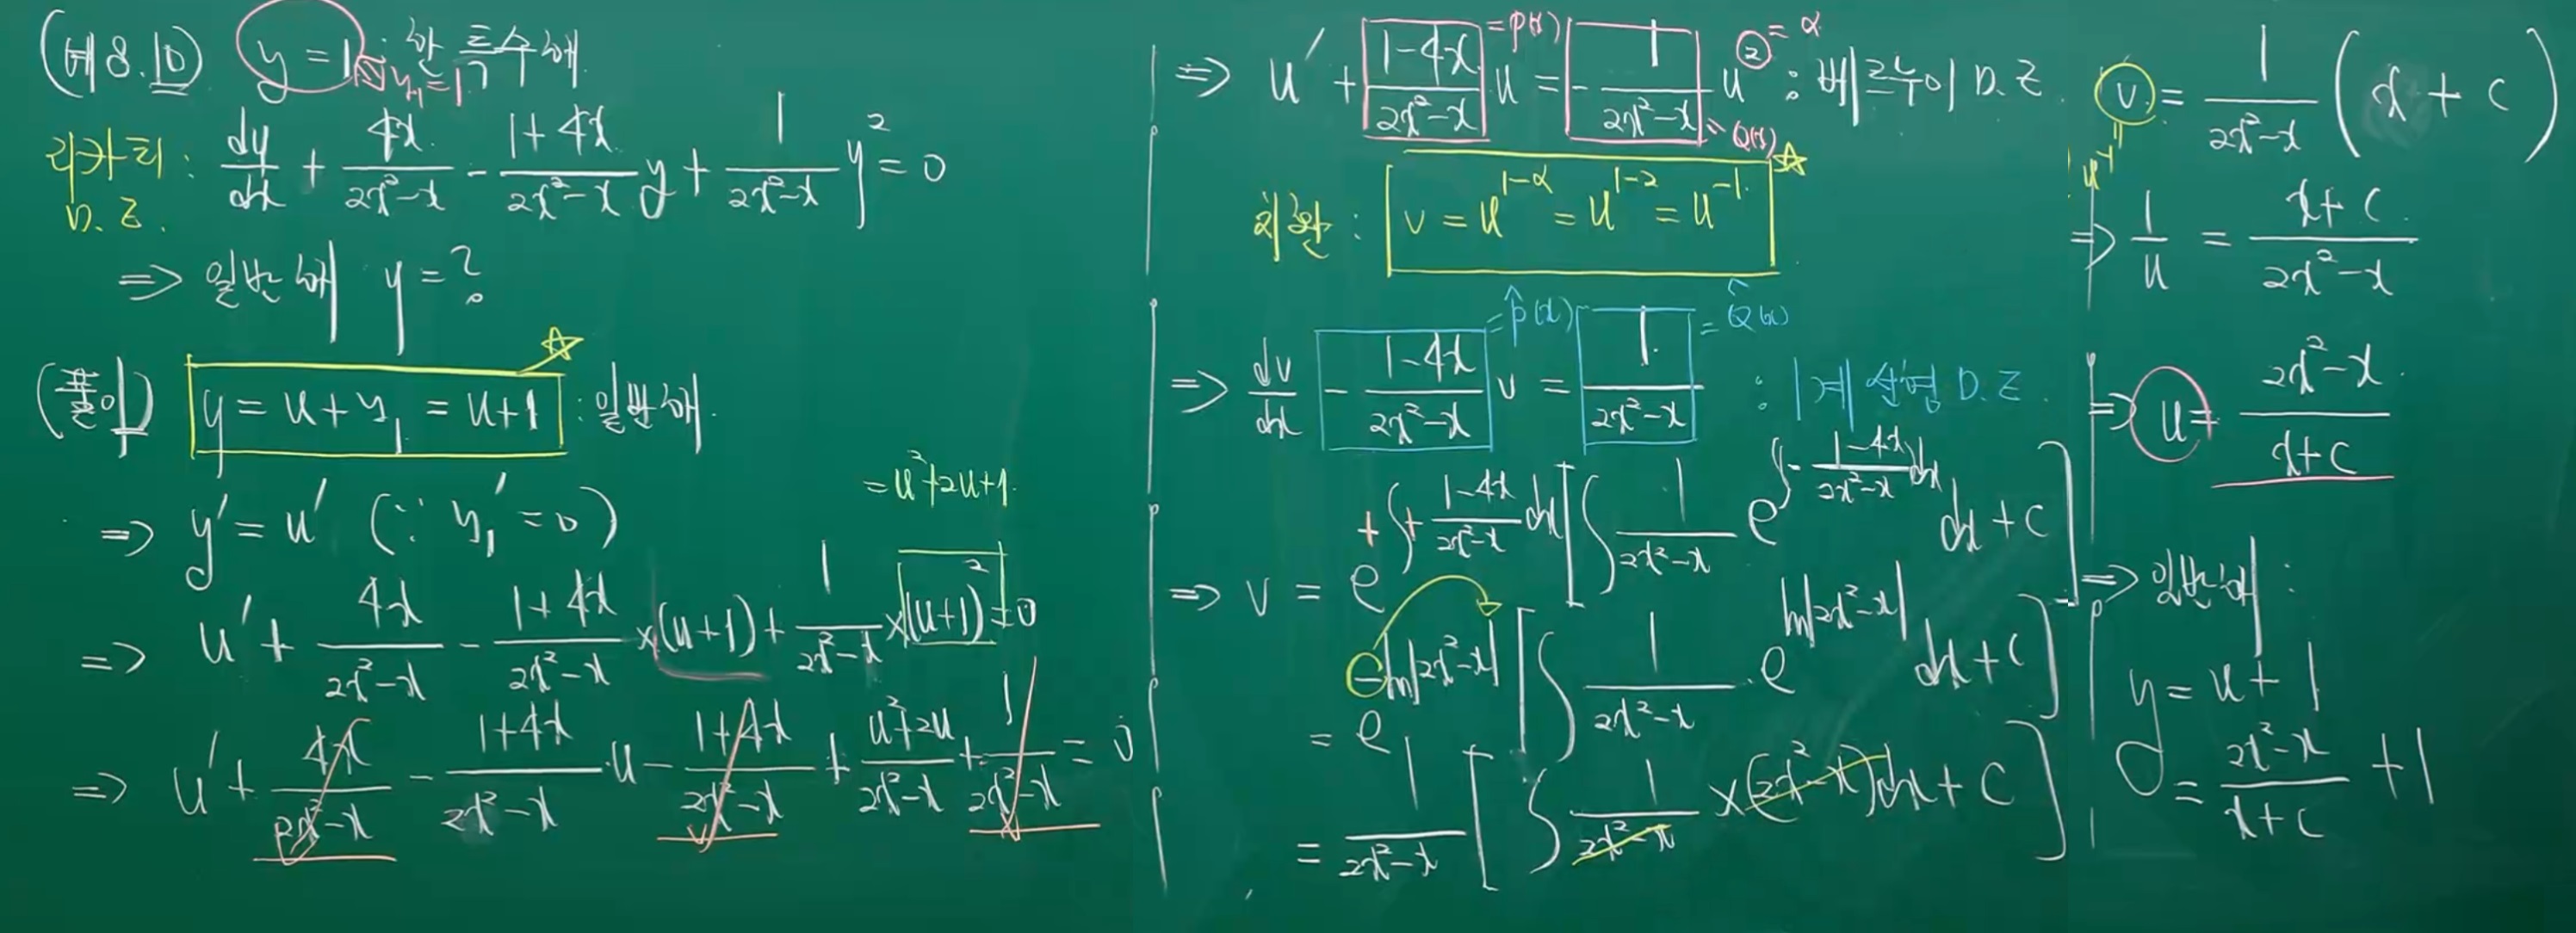 (예 8.10) y = 1 : 한 특수해
⇒ y₁ = 1
리카티 D.E. : dy/dx + 4x/(2x²-x) - (1+4x)/(2x²-x) y + 1/(2x²-x) y² = 0
⇒ 일반해 y = ?
(풀이) y = u + y₁ = u+1 : 일반해.
⇒ y' = u' (∵ y₁' = 0)
= u²+2u+1.
⇒ u' + 4x/(2x²-x) - (1+4x)/(2x²-x) ×(u+1) + 1/(2x²-x) ×(u+1)² = 0
⇒ u' + 4x/(2x²-x) - (1+4x)/(2x²-x) ·u - (1+4x)/(2x²-x) + (u²+2u)/(2x²-x) + 1/(2x²-x) = 0
⇒ u' + (1-4x)/(2x²-x) u = - 1/(2x²-x) u² : 베르누이 D.E.
= p(x)
= Q(x)
② = α
치환 : v = u^(1-α) = u^(1-2) = u^(-1)
⇒ dv/dx - (1-4x)/(2x²-x) v = 1/(2x²-x) : 1계 선형 D.E.
= p̂(x)
= Q̂(x)
⇒ v = e^(+∫+(1-4x)/(2x²-x) dx) [∫ 1/(2x²-x) e^(∫-(1-4x)/(2x²-x) dx) dx + c]
= e^(-ln|2x²-x|) [∫ 1/(2x²-x) · e^(ln|2x²-x|) dx + c]
= 1/(2x²-x) [∫ 1/(2x²-x) ×(2x²-x) dx + c]
v = 1/(2x²-x) (x + c)
u^(-1)
⇒ 1/u = (x+c)/(2x²-x)
⇒ u = (2x²-x)/(x+c)
⇒ 일반해 :
y = u + 1
= (2x²-x)/(x+c) + 1